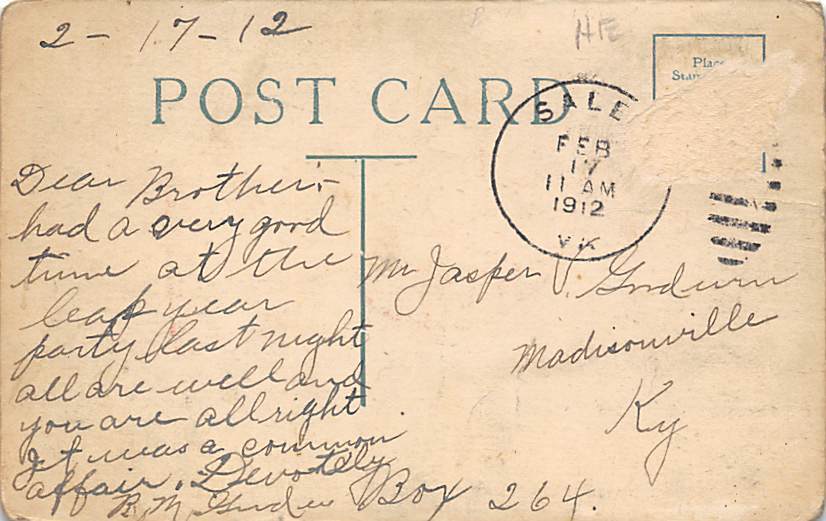 2-17-12
POST CARD
Place
Stam
SALE
FEB
17
11 AM
1912
Dear Brother:-
had a very good
time at the
leap year
party last night
all are well and
you are all right
It was a common
affair. Devotedly
R. M.
Mr Jasper V.
Madisonville
Ky
Box 264.